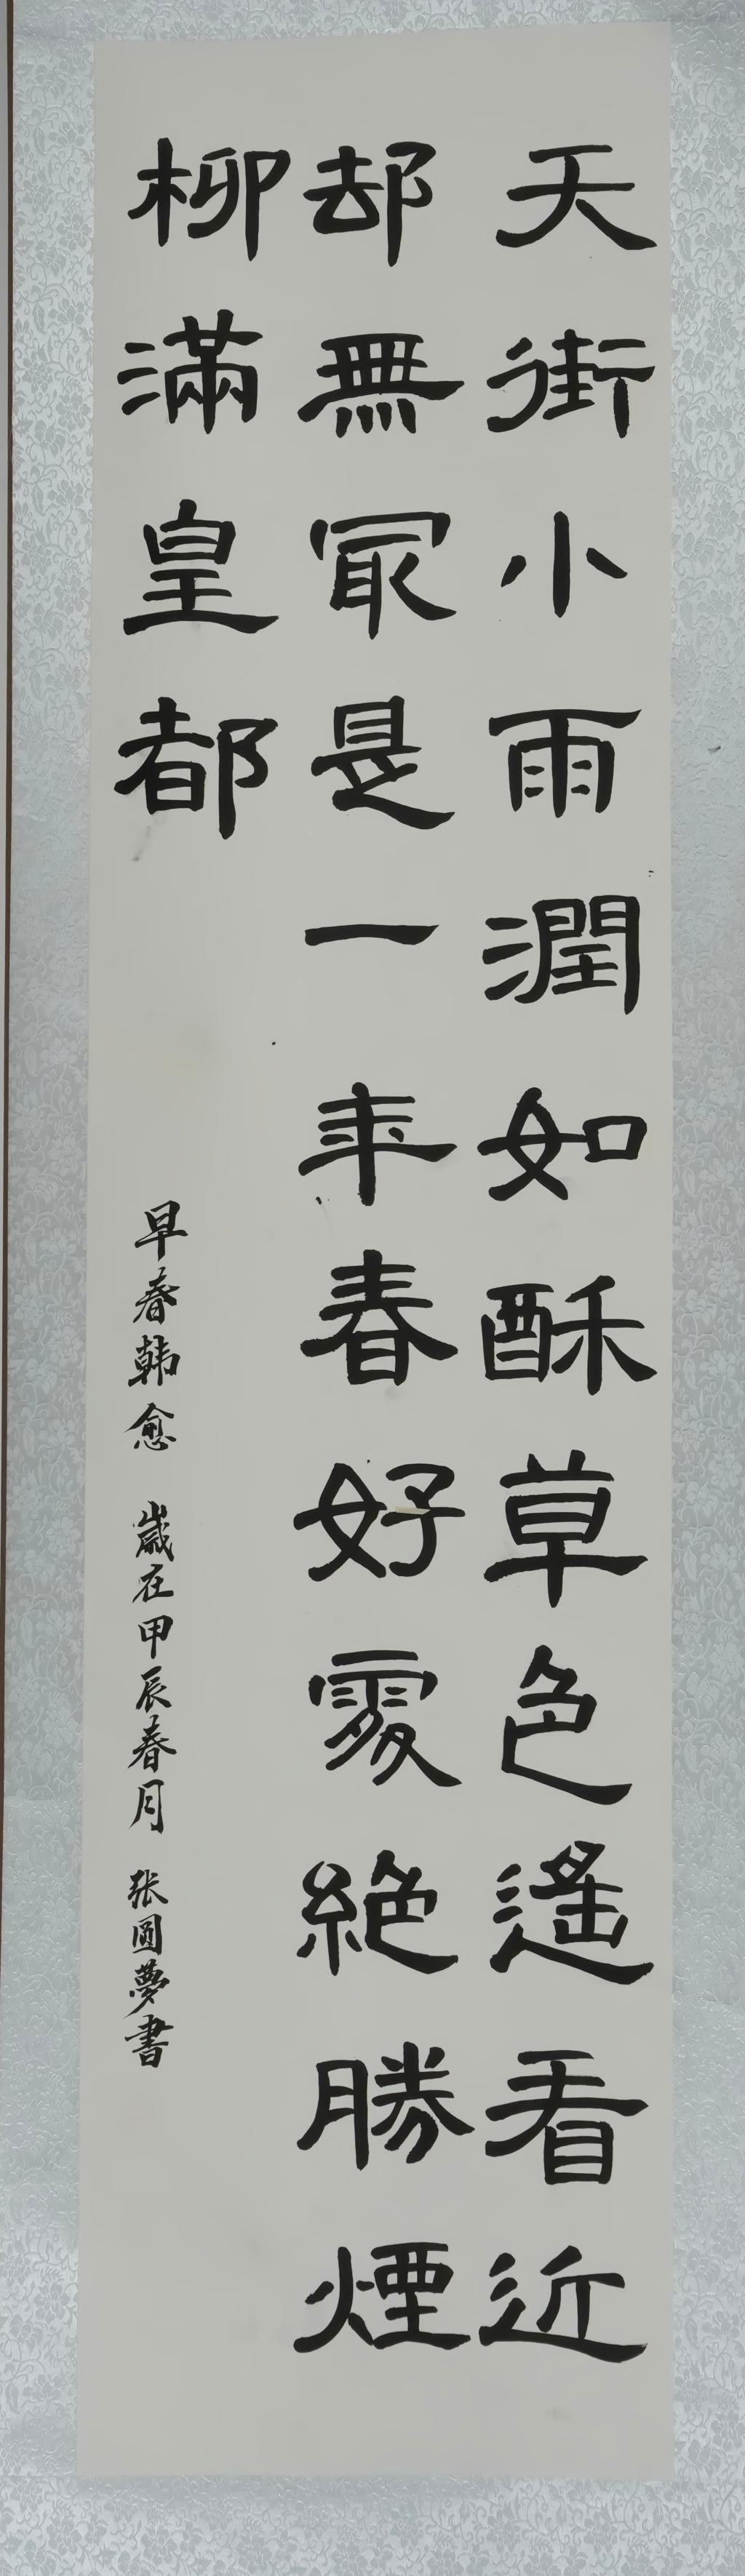 天街小雨潤如酥草色遙看近
却無冣是一年春好處絕勝煙
柳滿皇都
早春韩愈 歲在甲辰春月 张圆夢書